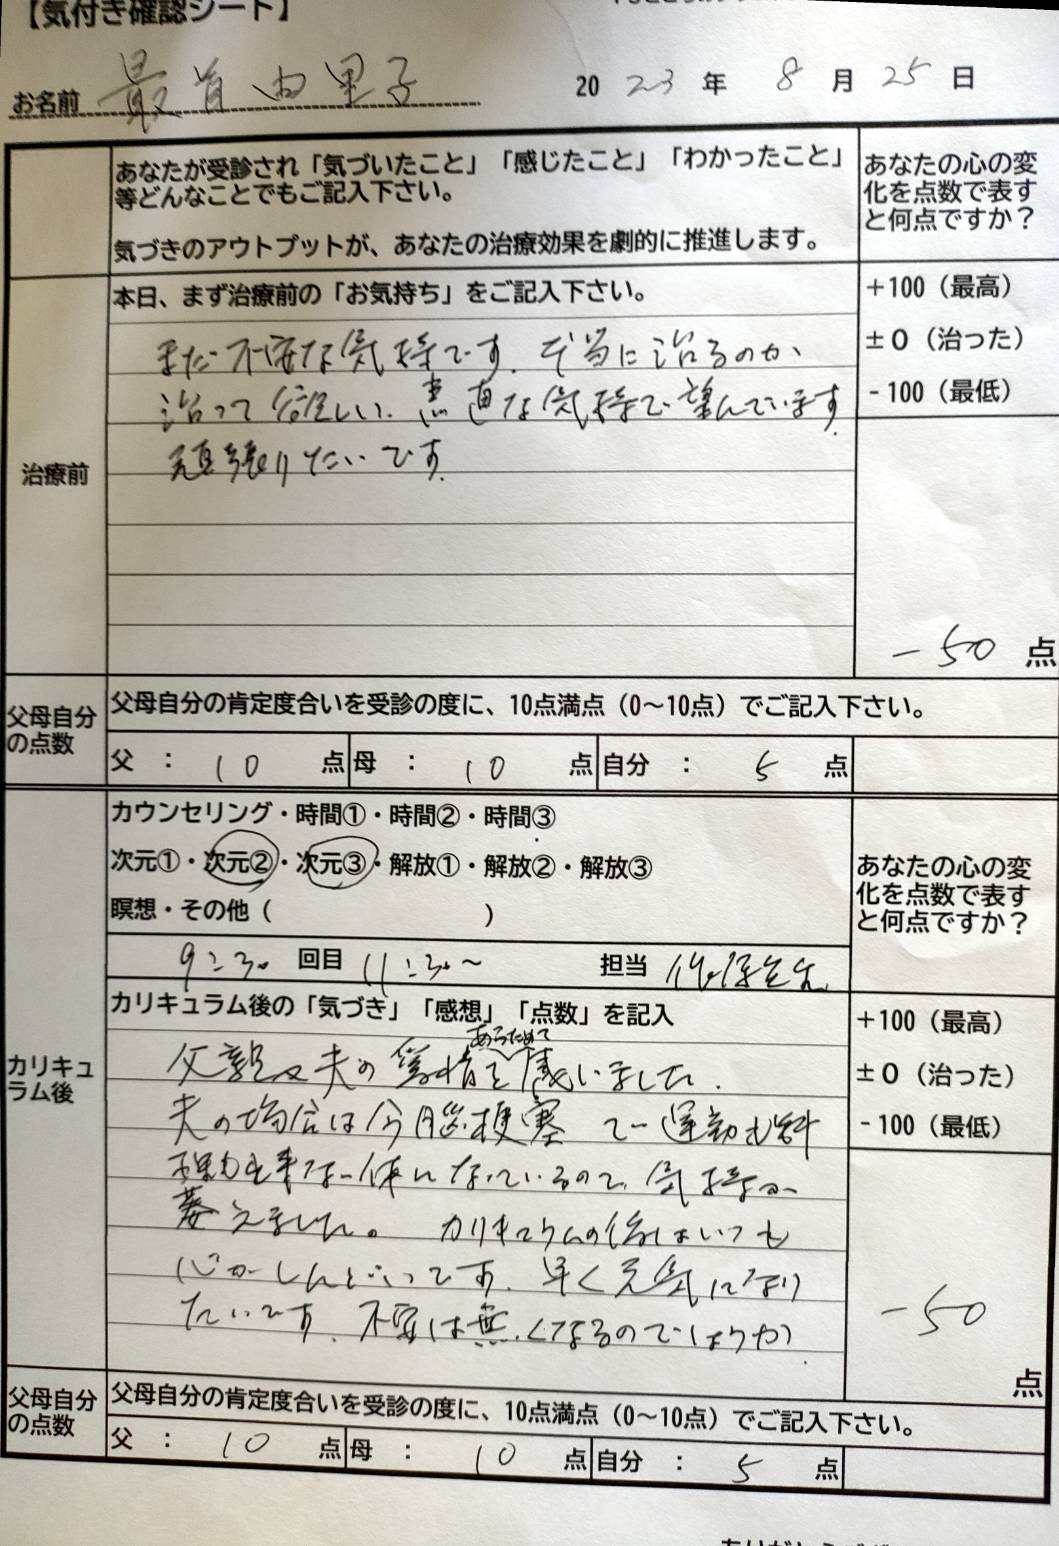 【気付き確認シート】
お名前 最首由里子 2023年 8月 25日
あなたが受診され「気づいたこと」「感じたこと」「わかったこと」
等どんなことでもご記入下さい。
気づきのアウトプットが、あなたの治療効果を劇的に推進します。
あなたの心の変
化を点数で表す
と何点ですか？
治療前
本日、まず治療前の「お気持ち」をご記入下さい。
+100（最高）
±0（治った）
-100（最低）
まだ不安な気持です. 本当に治るのか、
治って欲しい. 素直な気持で望んでいます.
頑張りたいです.
-50 点
父母自分
の点数
父母自分の肯定度合いを受診の度に、10点満点（0〜10点）でご記入下さい。
父 : 10 点 母 : 10 点 自分 : 5 点
カリキュ
ラム後
カウンセリング・時間①・時間②・時間③
次元①・次元②・次元③・解放①・解放②・解放③
瞑想・その他（ ）
あなたの心の変
化を点数で表す
と何点ですか？
9:30 回目 11:30〜 担当
カリキュラム後の「気づき」「感想」「点数」を記入
+100（最高）
±0（治った）
-100（最低）
あらためて
父親又夫の愛情を感いました.
夫の場合は今脳梗塞で運動も
出来ない体になっているので、気持が
萎えました。カリキュラムの後はいつも
心がしんどいです. 早く元気になり
たいです. 不安は無くなるのでしょうか
-50
点
父母自分
の点数
父母自分の肯定度合いを受診の度に、10点満点（0〜10点）でご記入下さい。
父 : 10 点 母 : 10 点 自分 : 5 点